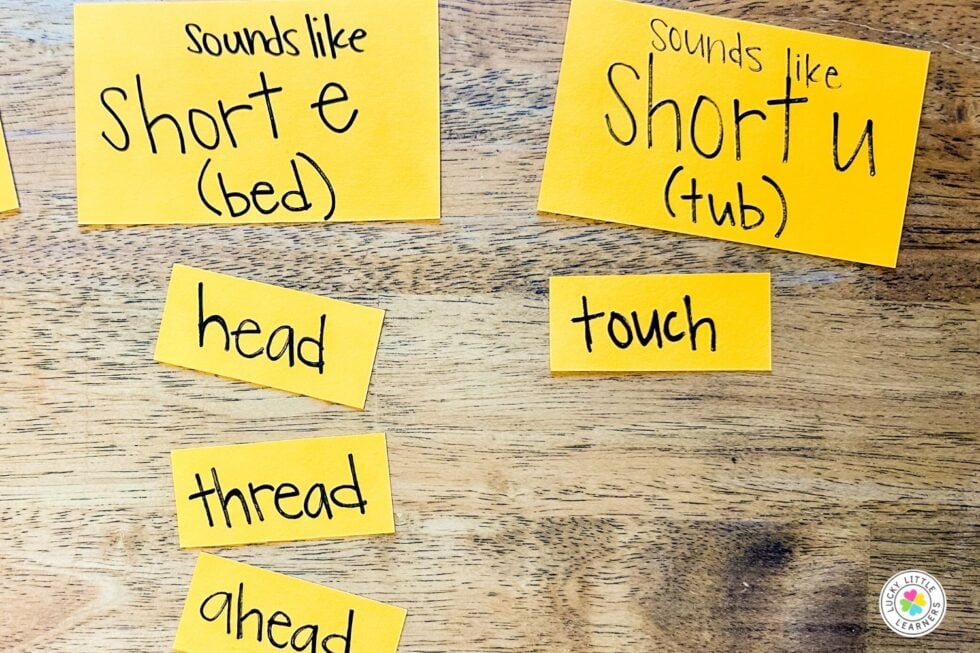 sounds like
short e
(bed)
head
thread
ahead
sounds like
short u
(tub)
touch
LUCKY LITTLE
LEARNERS